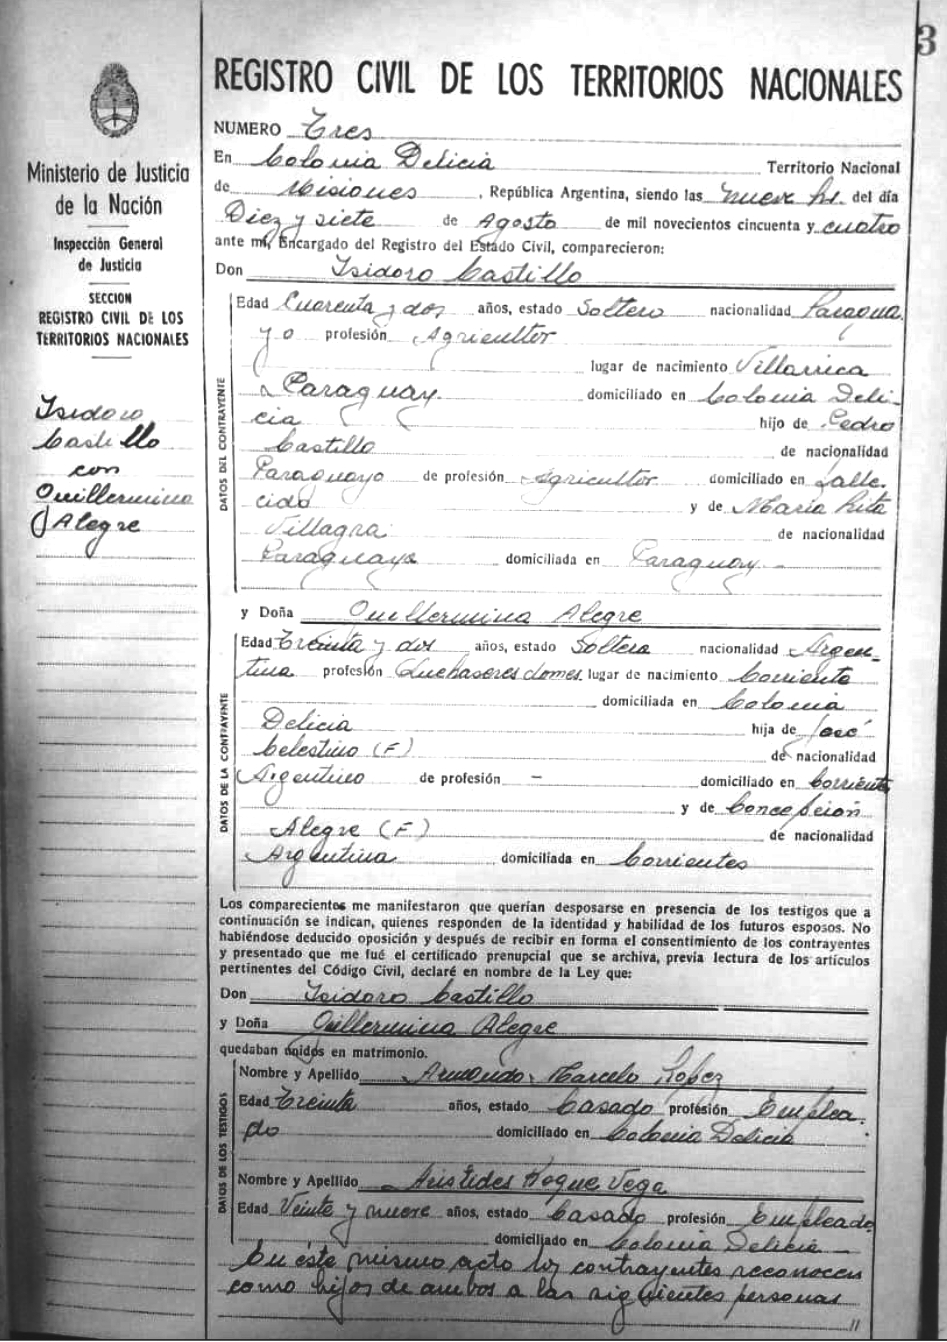 3
Ministerio de Justicia
de la Nación
Inspección General
de Justicia
SECCION
REGISTRO CIVIL DE LOS
TERRITORIOS NACIONALES
Isidoro
Castillo
con
Guillermina
Alegre
REGISTRO CIVIL DE LOS TERRITORIOS NACIONALES
NUMERO Tres
En Colonia Delicia Territorio Nacional
de Misiones, República Argentina, siendo las nueve hs. del día
Diez y siete de Agosto de mil novecientos cincuenta y cuatro
ante mí, Encargado del Registro del Estado Civil, comparecieron:
Don Isidoro Castillo
DATOS DEL CONTRAYENTE
Edad Cuarenta y dos años, estado Soltero nacionalidad Paragua
yo profesión Agricultor
lugar de nacimiento Villarrica
Paraguay. domiciliado en Colonia Deli-
cia hijo de Pedro
Castillo de nacionalidad
Paraguayo de profesión Agricultor domiciliado en Falle-
cido y de María Rita
Villagra de nacionalidad
Paraguaya domiciliada en Paraguay.-
y Doña Guillermina Alegre
DATOS DE LA CONTRAYENTE
Edad Treinta y dos años, estado Soltera nacionalidad Argen-
tina profesión Quehaseres domes. lugar de nacimiento Corriente
domiciliada en Colonia
Delicia hija de José
Celestino (F) de nacionalidad
Argentino de profesión - domiciliado en Corrientes
y de Concepción
Alegre (F) de nacionalidad
Argentina domiciliada en Corrientes
Los comparecientes me manifestaron que querían desposarse en presencia de los testigos que a
continuación se indican, quienes responden de la identidad y habilidad de los futuros esposos. No
habiéndose deducido oposición y después de recibir en forma el consentimiento de los contrayentes
y presentado que me fué el certificado prenupcial que se archiva, previa lectura de los artículos
pertinentes del Código Civil, declaré en nombre de la Ley que:
Don Isidoro Castillo
y Doña Guillermina Alegre
quedaban unidos en matrimonio.
DATOS DE LOS TESTIGOS
Nombre y Apellido Armando Marcelo Lopez
Edad Treinta años, estado Casado profesión Emplea
do domiciliado en Colonia Delicia
Nombre y Apellido Aristides Roque Vega
Edad Veinte y nueve años, estado Casado profesión Empleado
domiciliado en Colonia Delicia
En éste mismo acto los contrayentes reconocen
como hijos de ambos a las siguientes personas
//